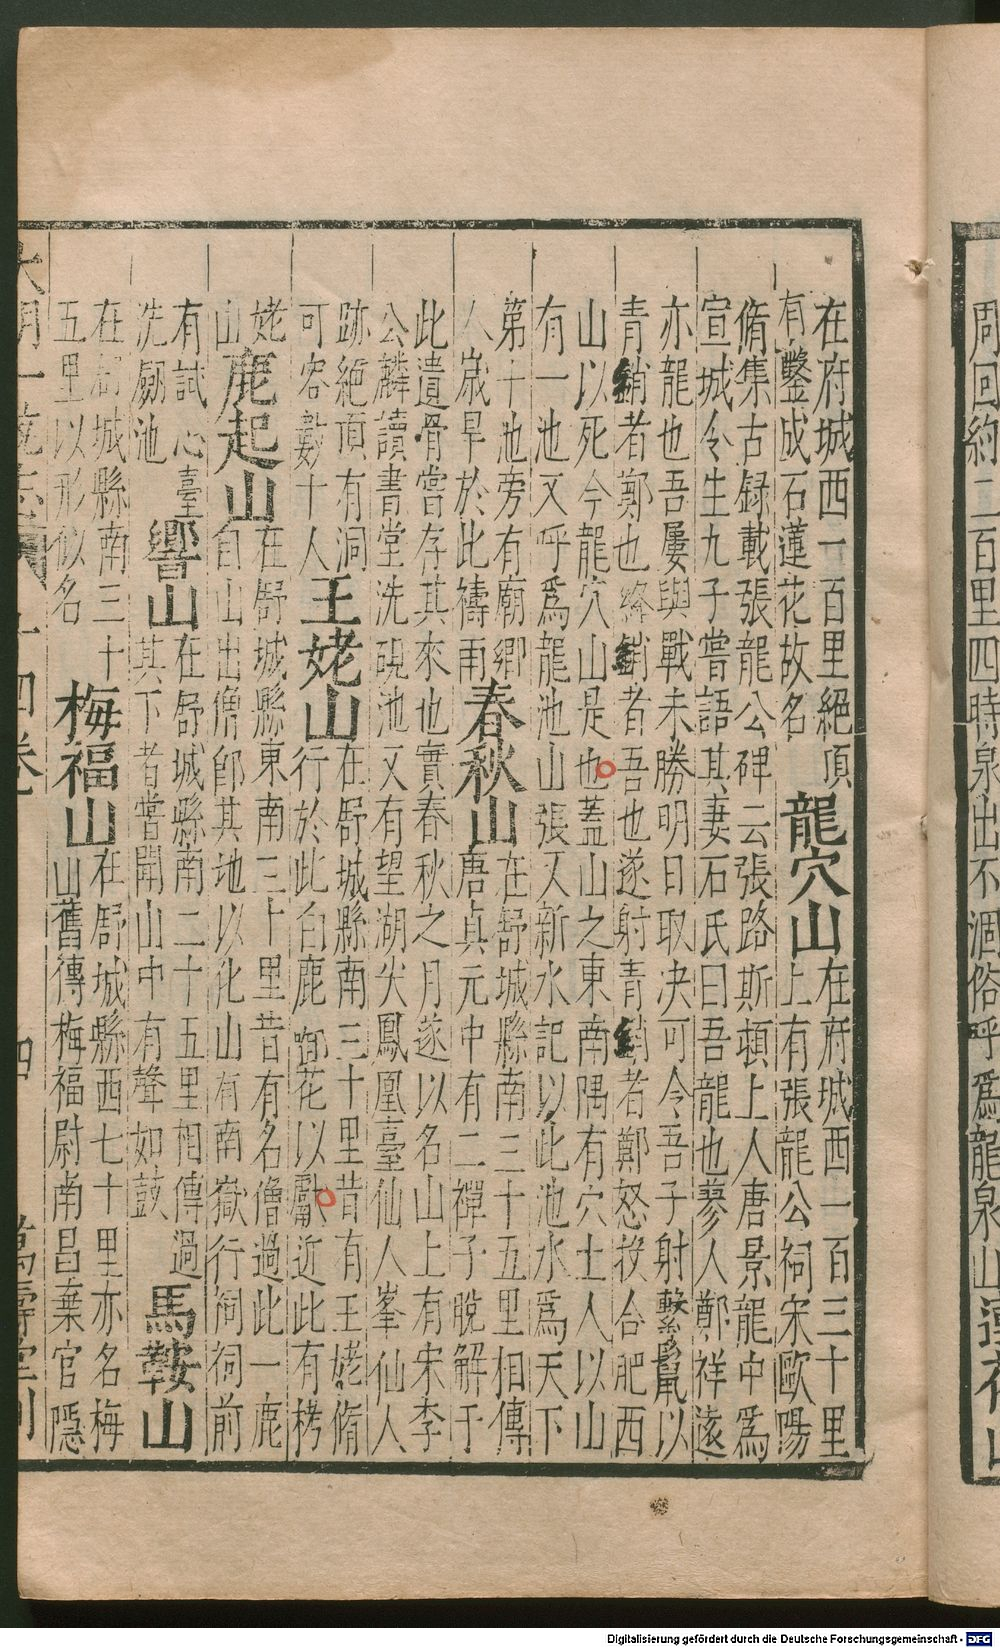 周回約二百里四時泉出不涸俗呼爲龍泉山
在府城西一百里絕頂
有鑿成石蓮花故名
龍穴山
在府城西一百三十里
上有張龍公祠宋歐陽
脩集古録載張龍公碑云張路斯頓上人唐景龍中爲
宣城令生九子嘗語其妻石氏曰吾龍也蓼人鄭祥遠
亦龍也吾屢與戰未勝明日取決可令吾子射繫鬣以
青綃者鄭也絳綃者吾也遂射青綃者鄭怒投合肥西
山以死今龍穴山是也蓋山之東南隅有穴土人以山
有一池又呼爲龍池山張又新水記以此池水爲天下
第十池旁有廟鄉
人歲旱於此禱雨
春秋山
在舒城縣南三十五里相傳
唐貞元中有二禪子脫解于
此遺骨嘗存其來也實春秋之月遂以名山上有宋李
公麟讀書堂洗硯池又有望湖尖鳳凰臺仙人峯仙人
跡絕頂有洞
可容數十人
王姥山
在舒城縣南三十里昔有王姥脩
行於此白鹿啣花以獻近此有栲
姥
山
鹿起山
在舒城縣東南三十里昔有名僧過此一鹿
自山出僧卽其地以化山有南嶽行祠祠前
有試心臺
洗劒池
響山
在舒城縣南二十五里相傳過
其下者嘗聞山中有聲如鼓
馬鞍山
在舒城縣南三十
五里以形似名
梅福山
在舒城縣西七十里亦名梅
山舊傳梅福尉南昌棄官隱
大明一統志 十四卷 四 萬壽堂刊
Digitalisierung gefördert durch die Deutsche Forschungsgemeinschaft - DFG